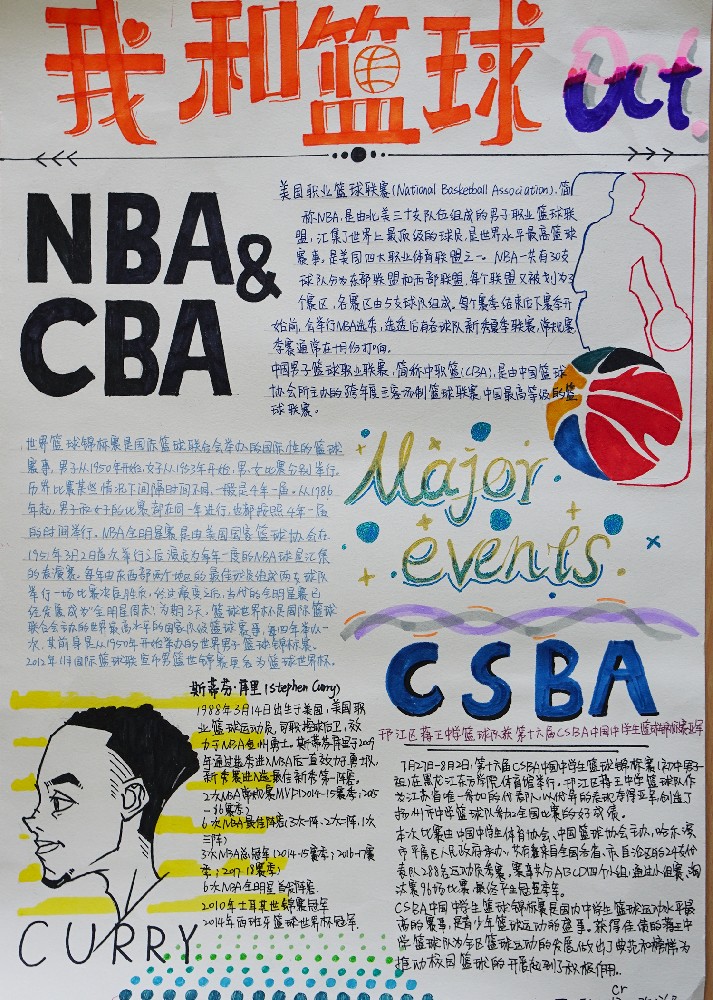 我和篮球
Oct
NBA
&
CBA
美国职业篮球联赛(National Basketball Association),简
称NBA,是由北美三十支队伍组成的男子职业篮球联
盟,汇集了世界上最顶级的球员,是世界水平最高篮球
赛事,是美国四大职业体育联盟之一。NBA一共有30支
球队分为东部联盟和西部联盟,每个联盟又被划为3
个赛区,各赛区由5支球队组成。每个赛季结束后下赛季开
始前,会举行NBA选秀,选秀后有各球队新秀夏季联赛,常规赛
季赛通常在十月份打响。
中国男子篮球职业联赛,简称中职篮(CBA),是由中国篮球
协会所主办的跨年度主客场制篮球联赛,中国最高等级的篮
球联赛。
Major
events
世界篮球锦标赛是国际篮球联合会举办的国际性的篮球
赛事,男子从1950年开始,女子从1953年开始,男女比赛分别举行。
历界比赛某些情况下间隔时间不同,一般是4年一届。从1986
年起,男子和女子的比赛都在同一年进行,也都按照4年一届
的时间举行。NBA全明星赛是由美国国家篮球协会在
1951年3月2日首次举行之后演变为每年一度的NBA球星汇集
的表演赛。每年由东西部两个地区的最佳球员组成两支球队
举行一场比赛决定胜负,经过演变之后,当代的全明星赛已
经发展成为"全明星周末",为期3天。篮球世界杯是国际篮球
联合会主办的世界最高水平的国家队级篮球赛事,每四年举办一
次,其前身是从1950年开始举办的世界男子篮球锦标赛。
2012年1月国际篮球联宣布男篮世锦赛更名为篮球世界杯。
CSBA
邗江区蒋王中学篮球队获第十六届CSBA中国中学生篮球锦标赛亚军
7月27日-8月2日,第十六届CSBA中国中学生篮球锦标赛(初中男子
组)在黑龙江东方学院体育馆举行。邗江区蒋王中学篮球队作
为江苏省唯一参加的代表队,以优异的表现夺得亚军,创造了
扬州市中学篮球队参加全国比赛的最好成绩。
本次比赛由中国中学生体育协会、中国篮球协会主办,哈尔滨
市平房区人民政府承办,共有来自全国各省、市、自治区的24支代
表队288名运动员参赛。赛事共分ABCD四个小组,通过小组赛、淘
汰赛96场比赛,最终产生冠亚季军。
CSBA中国中学生篮球锦标赛是国内中学生篮球运动水平最
高的赛事,是青少年篮球运动的盛事。获得佳绩的蒋王中
学篮球队为全区篮球运动的发展做出了典范和榜样,为
推动校园篮球的开展起到了积极作用。
斯蒂芬·库里(Stephen Curry)
1988年3月14日出生于美国,美国职
业篮球运动员,司职控球后卫,效
力于NBA金州勇士。斯蒂芬库里于2009
年通过选秀进入NBA后一直效力勇士队,
新秀赛季入选最佳新秀第一阵容。
2次NBA常规赛MVP(2014-15赛季;2015
-16赛季)
6次NBA最佳阵容(3次一阵、2次二阵、1次
三阵)
3次NBA总冠军(2014-15赛季;2016-17赛
季;2017-18赛季)
6次NBA全明星首发阵容
2010年土耳其世锦赛冠军
2014年西班牙篮球世界杯冠军.
CURRY
Cr